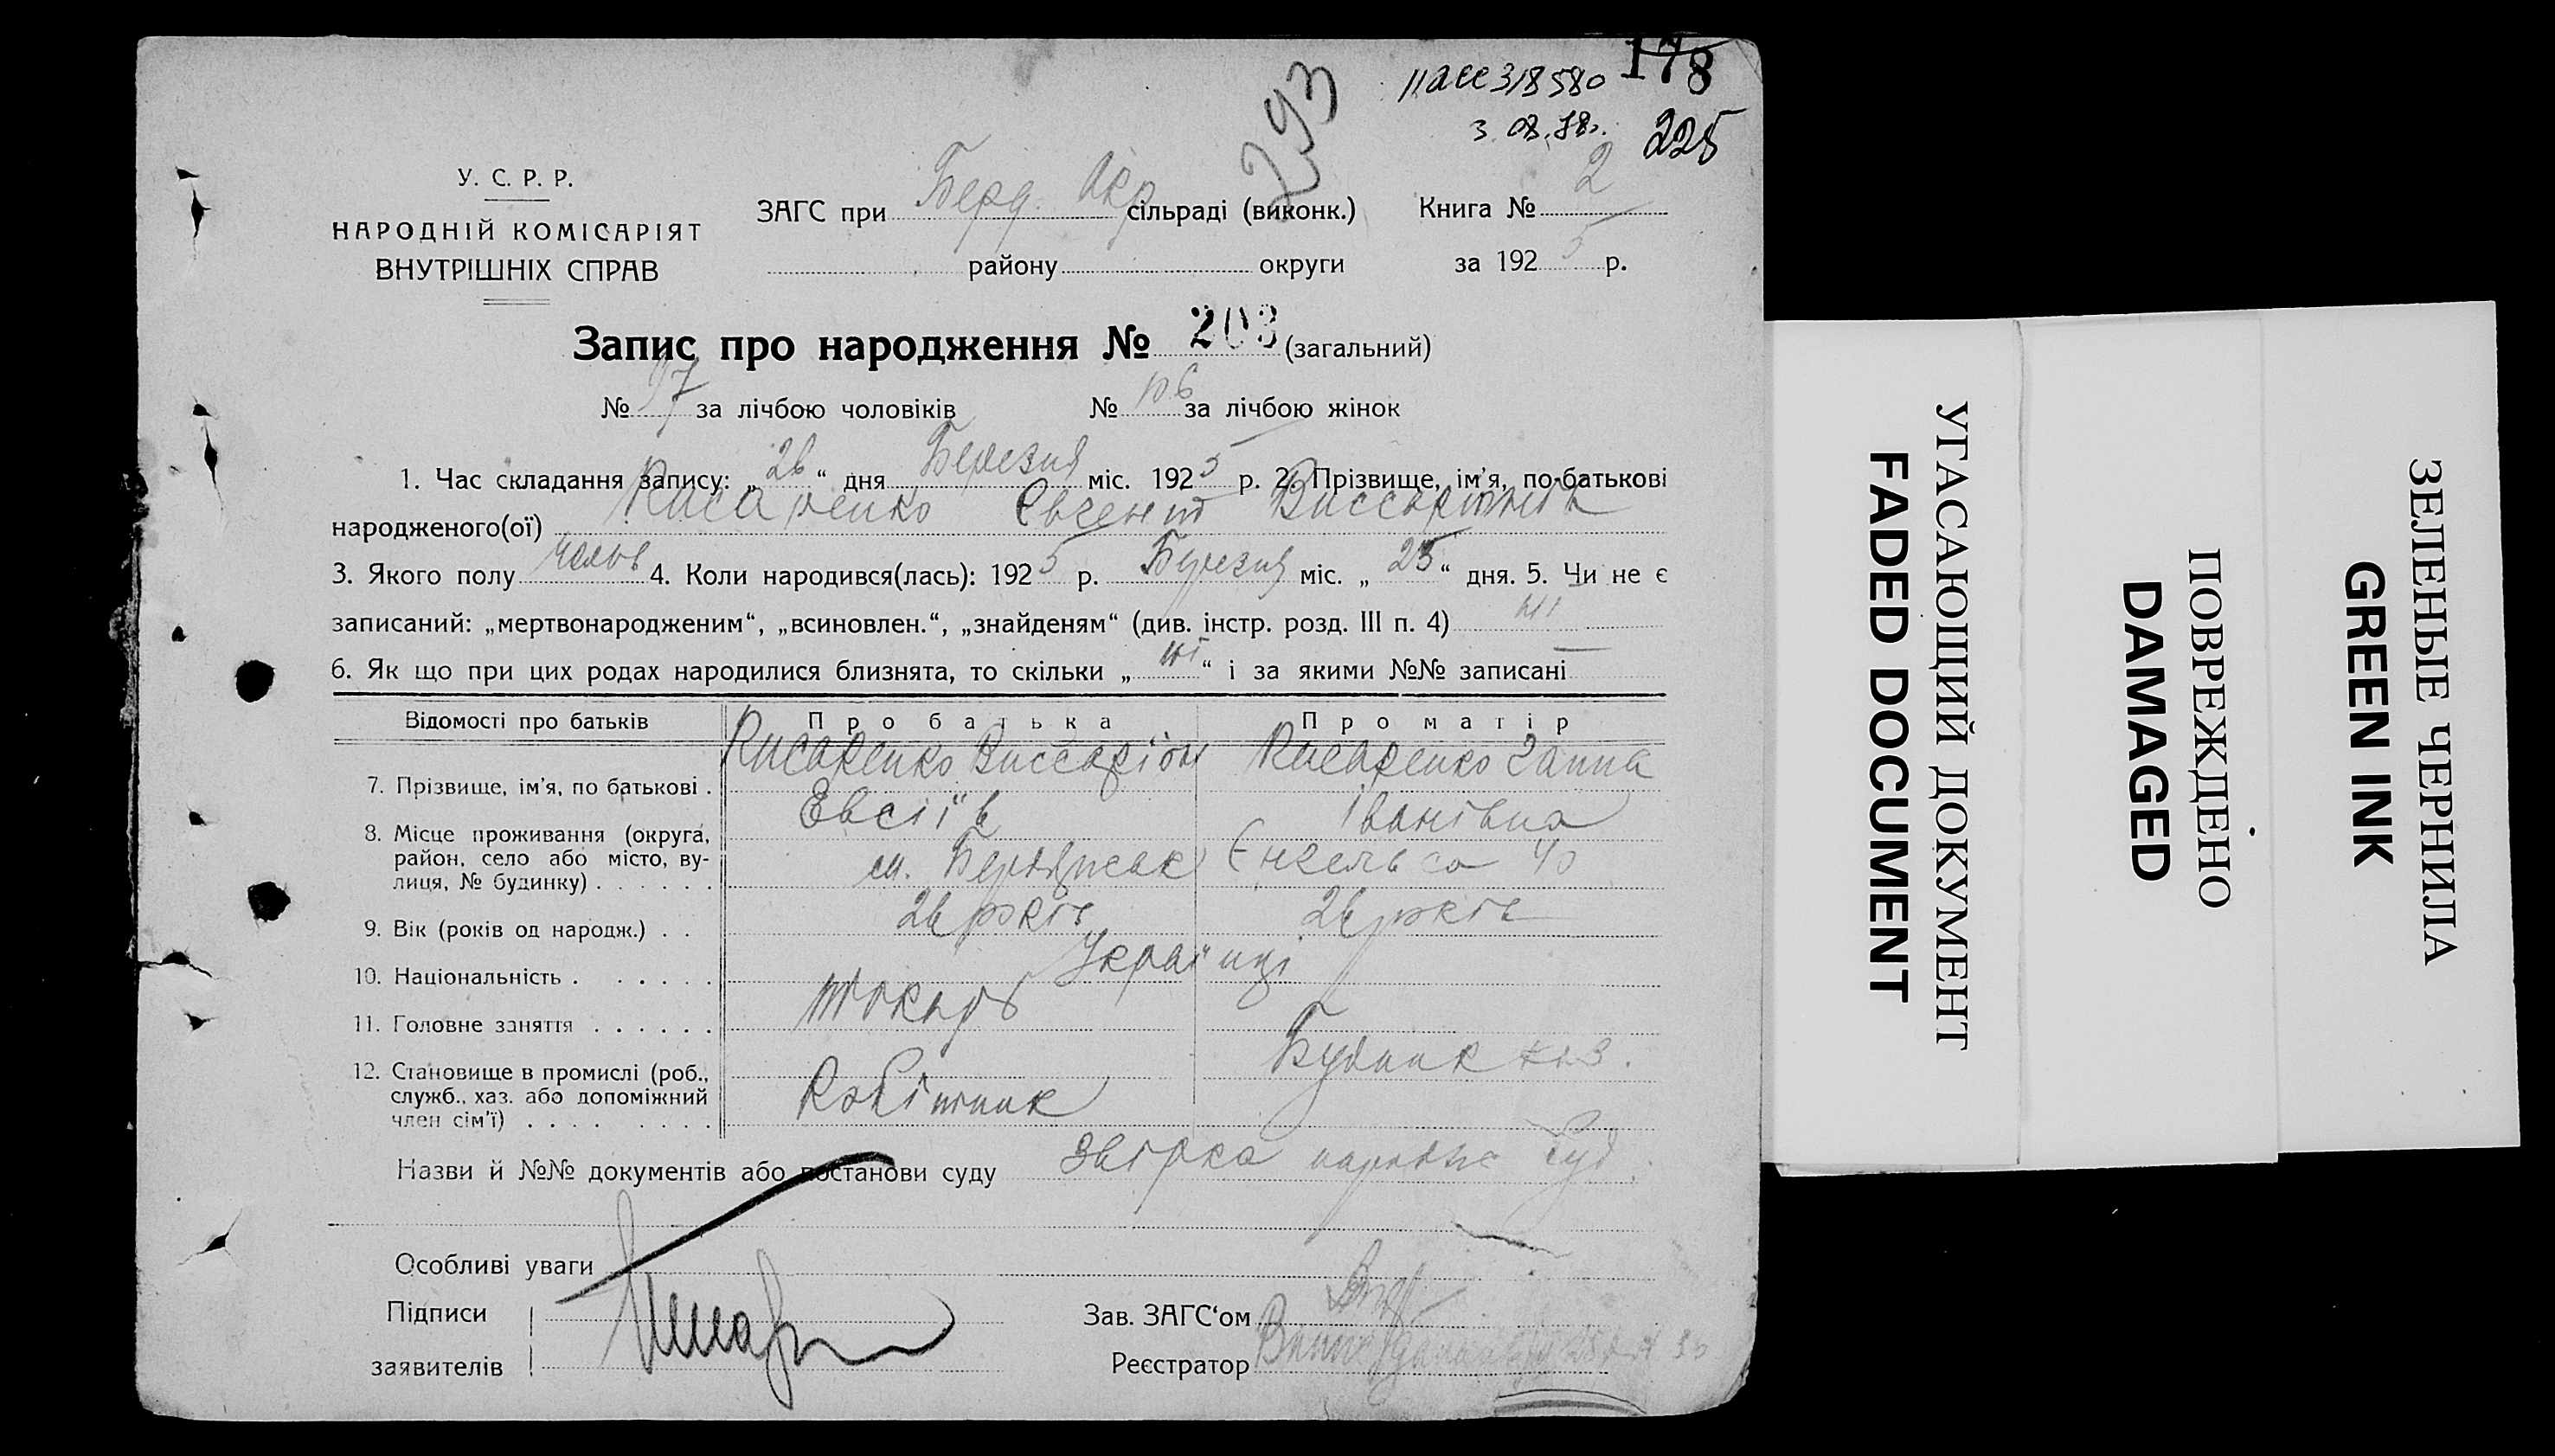 178
225
293
3.08.78.
У. С. Р. Р.
НАРОДНІЙ КОМІСАРІЯТ
ВНУТРІШНІХ СПРАВ
ЗАГС при Берд. Окр сільраді (виконк.) Книга № 2
района округи за 1925 р.
Запис про народження № 203 (загальний)
№ 97 за лічбою чоловіків № 106 за лічбою жінок
1. Час складання запису: „26“ дня Березня міс. 1925 р. 2. Прізвище, ім'я, по-батькові
народженого(ої) Писаренко Євгеній Виссаріонів
3. Якого полу чолов 4. Коли народився(лась): 1925 р. Березня міс. „25“ дня. 5. Чи не є
записаний: „мертвонародженим“, „всиновлен.“, „знайденям“ (див. інстр. розд. III п. 4) ні
6. Як що при цих родах народилися близнята, то скільки „ні“ і за якими №№ записані
Відомості про батьків Про батька Про матір
7. Прізвище, ім'я, по батькові . Писаренко Виссаріон Писаренко Ганна
Евсіїв Іванівна
8. Місце проживання (округа,
район, село або місто, ву-
лиця, № будинку) . . . . . . м. Бердянськ Енгельса 40
9. Вік (років од народж.) . . 26 років 26 років
10. Національність . . . . . . Українці
11. Головне заняття . . . . . . токарь
12. Становище в промислі (роб.,
служб., хаз. або допоміжний
член сім'ї) . . . . . . . . Робітник
Назви й №№ документів або постанови суду Звірка
Особливі уваги
Підписи
заявителів
Зав. ЗАГС'ом
Реєстратор
УГАСАЮЩИЙ ДОКУМЕНТ
FADED DOCUMENT
ПОВРЕЖДЕНО
DAMAGED
ЗЕЛЕНЫЕ ЧЕРНИЛА
GREEN INK